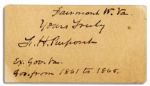 Fairmont W. Va.
Yours Truly
F. H. Pierpont
Ex. Gov. Va.
Gov from 1861 to 1868.